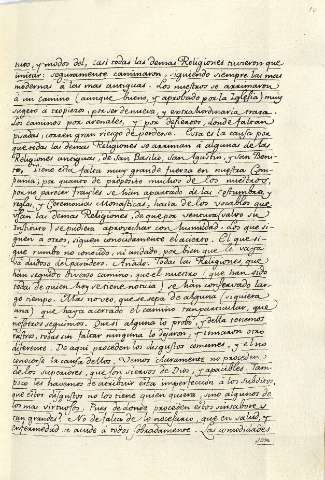 nes, y modos del, casi todas las demas Religiones tuvieron que
imitar: seguramente caminaron, siguiendo siempre las mas
modernas à las mas antiguas. Los nuestros se arrimaron
à un camino (aunque bueno, y aprobado por la Iglesia) muy
sugeto à tropiezos, por ser de nueva, y extrahordinaria traza.
Los caminos por arenales, y por desiertos, donde faltan
pisadas, corren gran riesgo de perderse. Esta es la causa por
que todas las demas Religiones se arriman a algunas de las
Religiones antiguas, de San Basilio, San Agustin, y San Beni-
to, tiene esta falta muy grande fuerza en nuestra Com-
pania; pa quantos de proposito muchos de los nuestros,
por no parecer frayles se han apartado de las costumbres,
reglas, y Ceremonias Monasticas, hasta de los vocablos que
usan las demas Religiones, de que por ventura (salvo su
Instituto) se pudiera aprovechar con humildad. Los que si-
guen à otros, siguen conocidamente el acierto. El que si-
gue rumbo no conocido, ni andado, por bien que le vaya
và dudoso del paradero. Añado: Todas las Religiones que
han seguido diverso camino, que el nuestro (que han sido
todas de quien hoy se tiene noticia) se han conservado lar-
go tiempo. Mas no veo, que se sepa de alguna (siquiera
una) que haya acertado el camino tan particular, que
nosotros seguimos. Que si alguna lo probó, y della tenemos
rastros, todas sin faltar ninguna lo dejaron, y tomaron otro
diferente. De aqui proceden los disgustos comunes, y el no
conocerse la causa dellos. Vemos claramente no proceden
de los superiores, que son siervos de Dios, y apacibles. Tam-
poco les havemos de atribuir esta imperfección à los subditos,
que estos disgustos no los tiene quien quiera, sino algunos de
los mas virtuosos. Pues de donde proceden estos sinsabores
tan grandes? No de falta de lo necesario, que en salud, y
enfermedad se acude à todos sobradamente. Las comodidades